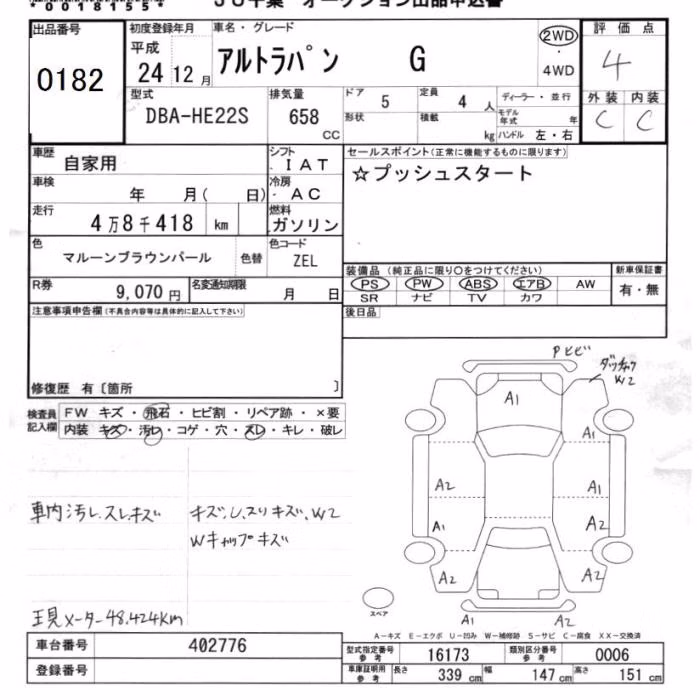 *00018155*
JU千葉 オークション出品申込書
出品番号 初度登録年月 車名・グレード 評価点
0182 平成 24 12月 アルトラパン G 2WD・4WD 4
型式 DBA-HE22S 排気量 658 CC ドア 5 定員 4人 ディーラー・並行 外装 内装
形状 積載 kg モデル年式 年 ハンドル 左・右 C C
車歴 自家用 シフト IAT セールスポイント(正常に機能するものに限ります)
車検 年 月( 日) 冷房 AC ☆プッシュスタート
走行 4万8千418 km 燃料 ガソリン
色 マルーンブラウンパール 色替 色コード ZEL
装備品(純正品に限り○をつけてください) 新車保証書
R券 9,070円 名変通知期限 月 日 PS PW ABS エアB AW 有・無
SR ナビ TV カワ
注意事項申告欄(不具合内容等は具体的に記入して下さい) 後日品
修復歴 有〔箇所 〕
検査員記入欄 FW キズ・飛石・ヒビ割・リペア跡・×要
内装 キズ・汚レ・コゲ・穴・スレ・キレ・破レ
Pヒビ
W2
A1
A1
A2 A1
A1 A2
A2 A2
A1 A2
車内汚レ、スレキズ キズ、U、スリキズ、W2
Wキャップキズ
現メーター48,424Km
スペア
A-キズ E-エクボ U-凹み W-補修跡 S-サビ C-腐食 XX-交換済
車台番号 402776 型式指定番号 参考 16173 類別区分番号 参考 0006
登録番号 車庫証明用 参考 長さ 339 cm 幅 147 cm 高さ 151 cm